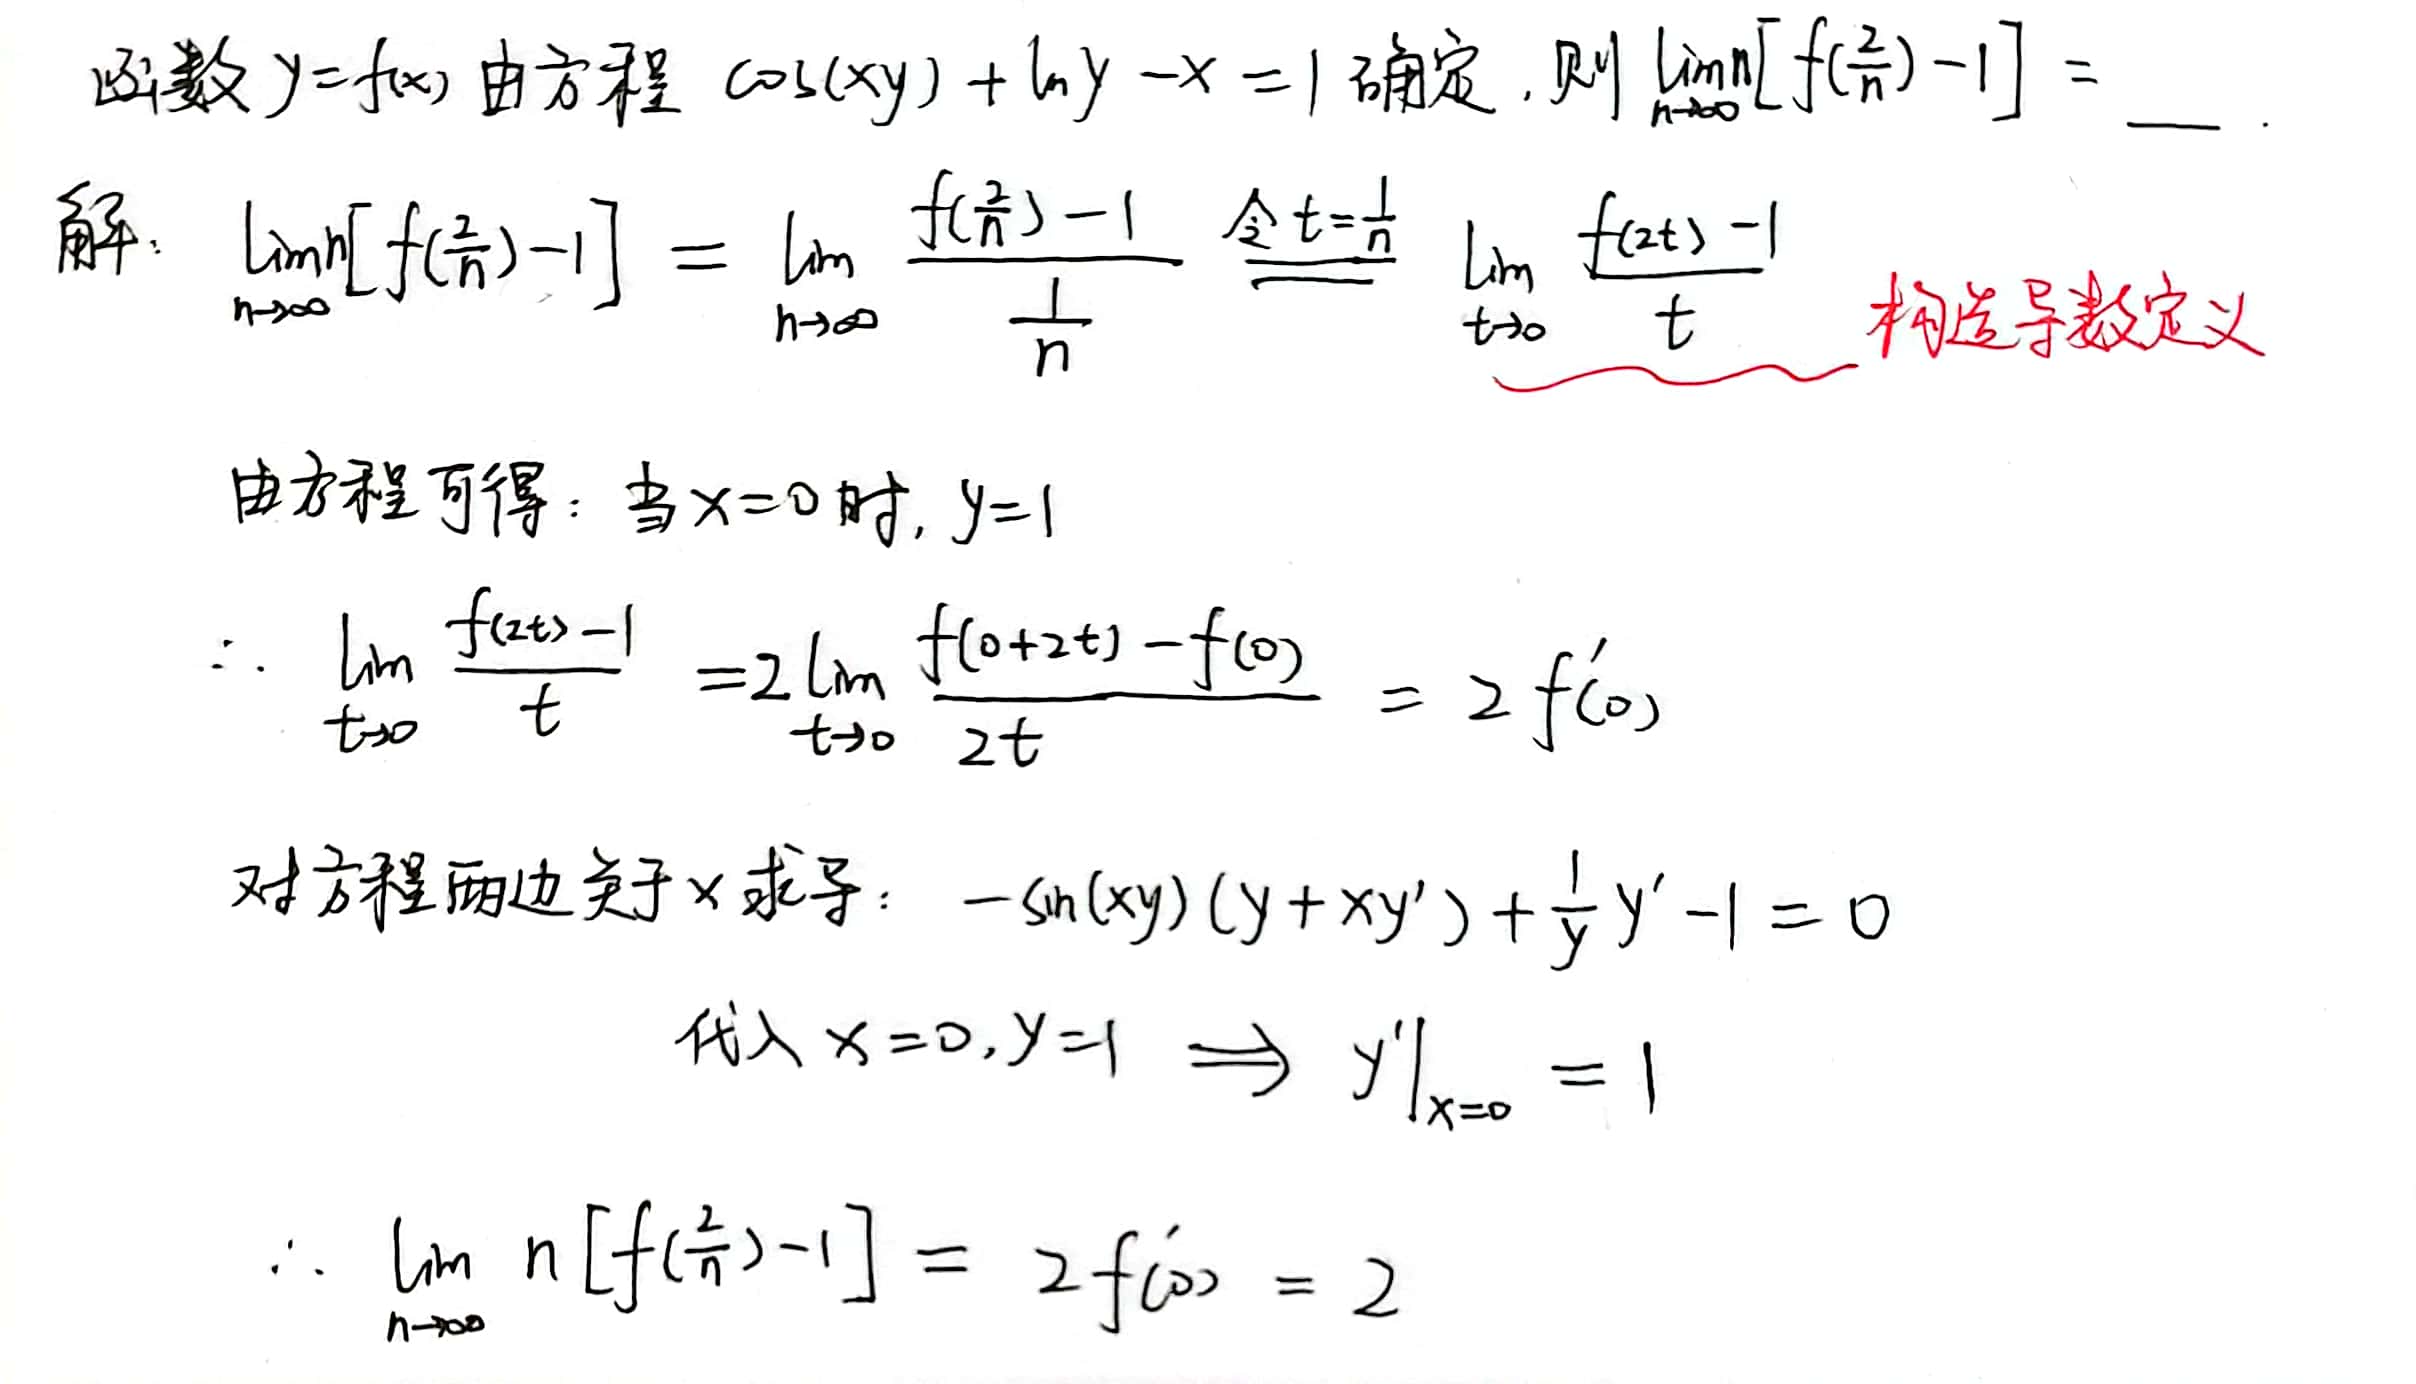 函数 y=f(x) 由方程 cos(xy) + ln y - x = 1 确定, 则 lim_{n→∞} n[f(2/n) - 1] = __ .
解: lim_{n→∞} n[f(2/n) - 1] = lim_{n→∞} (f(2/n) - 1)/(1/n) 令 t = 1/n lim_{t→0} (f(2t) - 1)/t 构造导数定义
由方程可得: 当 x=0 时, y=1
∴ lim_{t→0} (f(2t) - 1)/t = 2 lim_{t→0} (f(0+2t) - f(0))/2t = 2f'(0)
对方程两边关于 x 求导: -sin(xy)(y+xy') + (1/y)y' - 1 = 0
代入 x=0, y=1 ⟹ y'|_{x=0} = 1
∴ lim_{n→∞} n[f(2/n) - 1] = 2f'(0) = 2